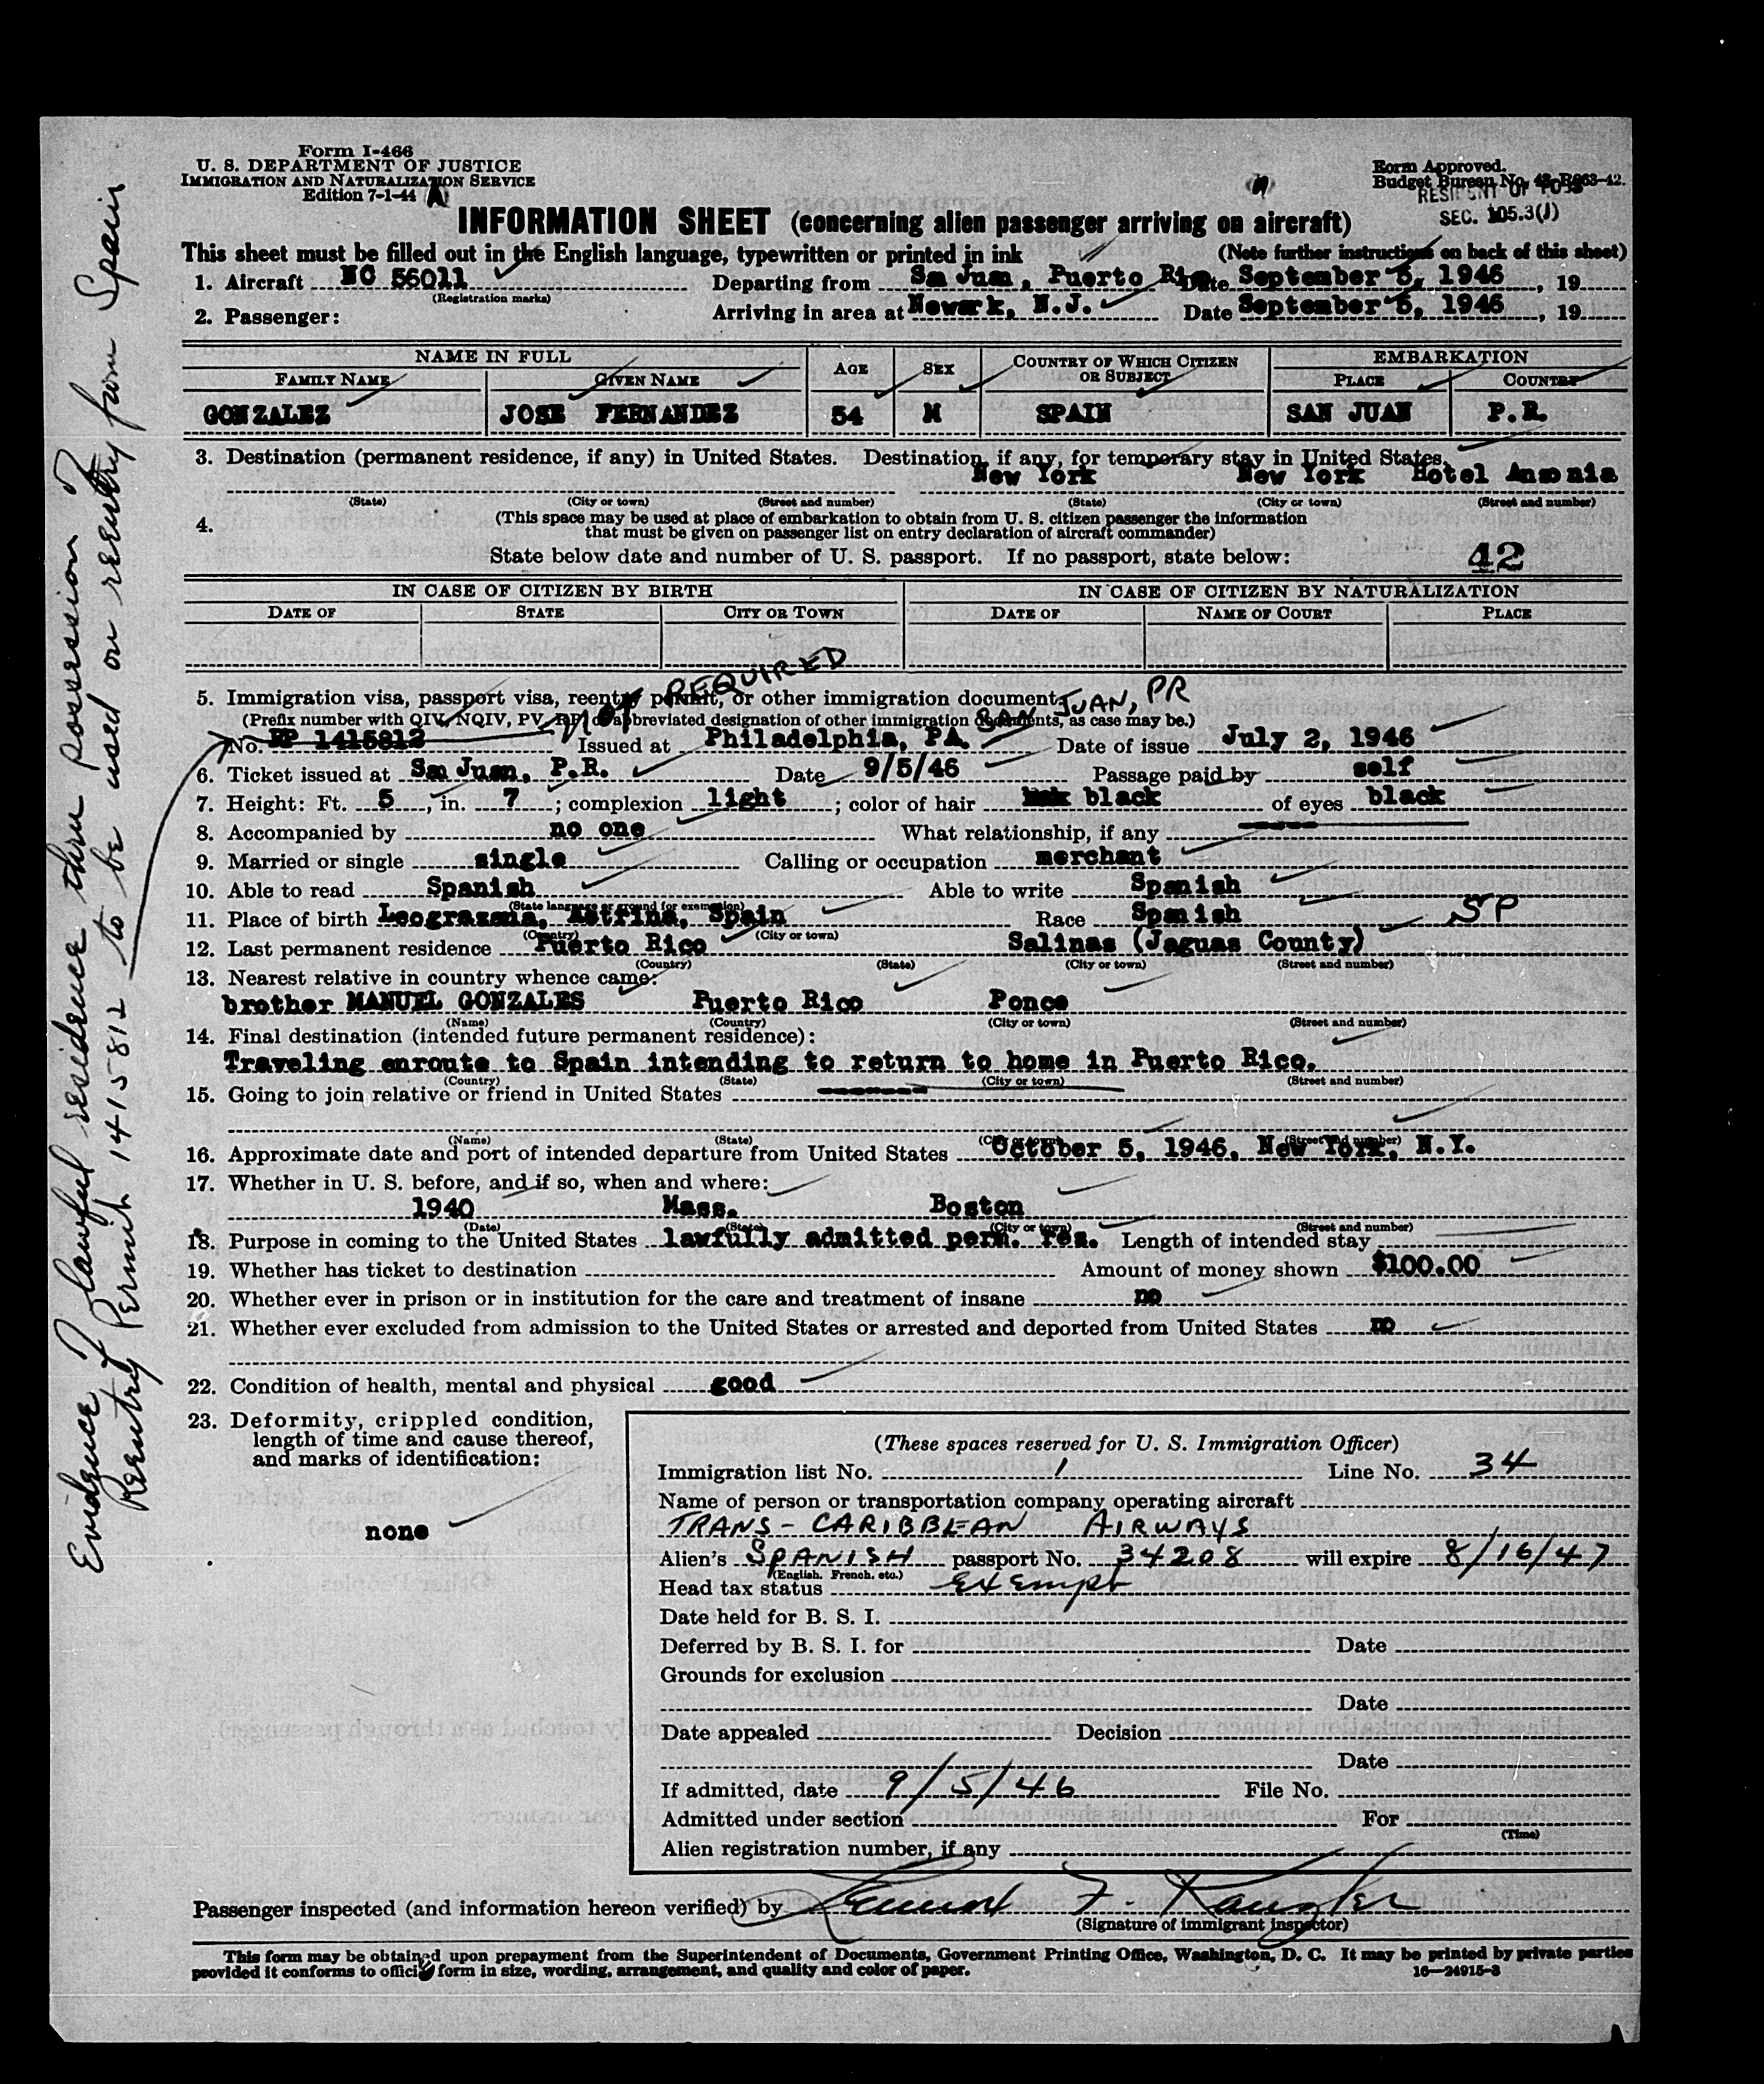 Form I-466
U. S. DEPARTMENT OF JUSTICE
IMMIGRATION AND NATURALIZATION SERVICE
Edition 7-1-44 (A)
Form Approved.
Budget Bureau No. 43-R063-42.
RESIDENT OF POSS
SEC. 105.3(J)
INFORMATION SHEET (concerning alien passenger arriving on aircraft)
This sheet must be filled out in the English language, typewritten or printed in ink (Note further instructions on back of this sheet)
1. Aircraft NC 56011 Departing from San Juan, Puerto Rico Date September 5, 1946, 19
(Registration marks)
2. Passenger: Arriving in area at Newark, N.J. Date September 5, 1946, 19
NAME IN FULL AGE SEX COUNTRY OF WHICH CITIZEN OR SUBJECT EMBARKATION
FAMILY NAME GIVEN NAME PLACE COUNTRY
GONZALEZ JOSE FERNANDEZ 54 M SPAIN SAN JUAN P.R.
3. Destination (permanent residence, if any) in United States. Destination, if any, for temporary stay in United States.
New York New York Hotel Ansonia
(State) (City or town) (Street and number) (State) (City or town) (Street and number)
4. (This space may be used at place of embarkation to obtain from U. S. citizen passenger the information
that must be given on passenger list on entry declaration of aircraft commander)
State below date and number of U. S. passport. If no passport, state below: 42
IN CASE OF CITIZEN BY BIRTH IN CASE OF CITIZEN BY NATURALIZATION
DATE OF STATE CITY OR TOWN DATE OF NAME OF COURT PLACE
NOT REQUIRED
5. Immigration visa, passport visa, reentry permit, or other immigration document:
SAN JUAN, PR
(Prefix number with QIV, NQIV, PV, RP, or abbreviated designation of other immigration documents, as case may be.)
No. RP 1415812 Issued at Philadelphia, PA. Date of issue July 2, 1946
6. Ticket issued at San Juan, P.R. Date 9/5/46 Passage paid by self
7. Height: Ft. 5, in. 7; complexion light; color of hair black of eyes black
8. Accompanied by no one What relationship, if any
9. Married or single single Calling or occupation merchant
10. Able to read Spanish Able to write Spanish
(State language or ground for exemption)
11. Place of birth Leograzana, Astrina, Spain Race Spanish SP
(Country) (City or town)
12. Last permanent residence Puerto Rico Salinas (Jaguas County)
(Country) (State) (City or town) (Street and number)
13. Nearest relative in country whence came:
brother MANUEL GONZALES Puerto Rico Ponce
(Name) (Country) (City or town) (Street and number)
14. Final destination (intended future permanent residence):
Traveling enroute to Spain intending to return to home in Puerto Rico.
(Country) (State) (City or town) (Street and number)
15. Going to join relative or friend in United States
(Name) (State) (City or town) (Street and number)
16. Approximate date and port of intended departure from United States October 5, 1946, New York, N.Y.
17. Whether in U. S. before, and if so, when and where:
1940 Mass. Boston
(Date) (State) (City or town) (Street and number)
18. Purpose in coming to the United States lawfully admitted perm. res. Length of intended stay
19. Whether has ticket to destination Amount of money shown $100.00
20. Whether ever in prison or in institution for the care and treatment of insane no
21. Whether ever excluded from admission to the United States or arrested and deported from United States no
22. Condition of health, mental and physical good
23. Deformity, crippled condition,
length of time and cause thereof,
and marks of identification:
none
(These spaces reserved for U. S. Immigration Officer)
Immigration list No. 1 Line No. 34
Name of person or transportation company operating aircraft
TRANS-CARIBBEAN AIRWAYS
Alien's SPANISH passport No. 34208 will expire 8/16/47
(English, French, etc.)
Head tax status Exempt
Date held for B. S. I.
Deferred by B. S. I. for Date
Grounds for exclusion
Date
Date appealed Decision
Date
If admitted, date 9/5/46 File No.
Admitted under section For
(Time)
Alien registration number, if any
Passenger inspected (and information hereon verified) by
(Signature of immigrant inspector)
This form may be obtained upon prepayment from the Superintendent of Documents, Government Printing Office, Washington, D. C. It may be printed by private parties
provided it conforms to official form in size, wording, arrangement, and quality and color of paper. 16—24915-3
Evidence of lawful residence thru possession of
Reentry Permit 1415812 to be used on reentry from Spain